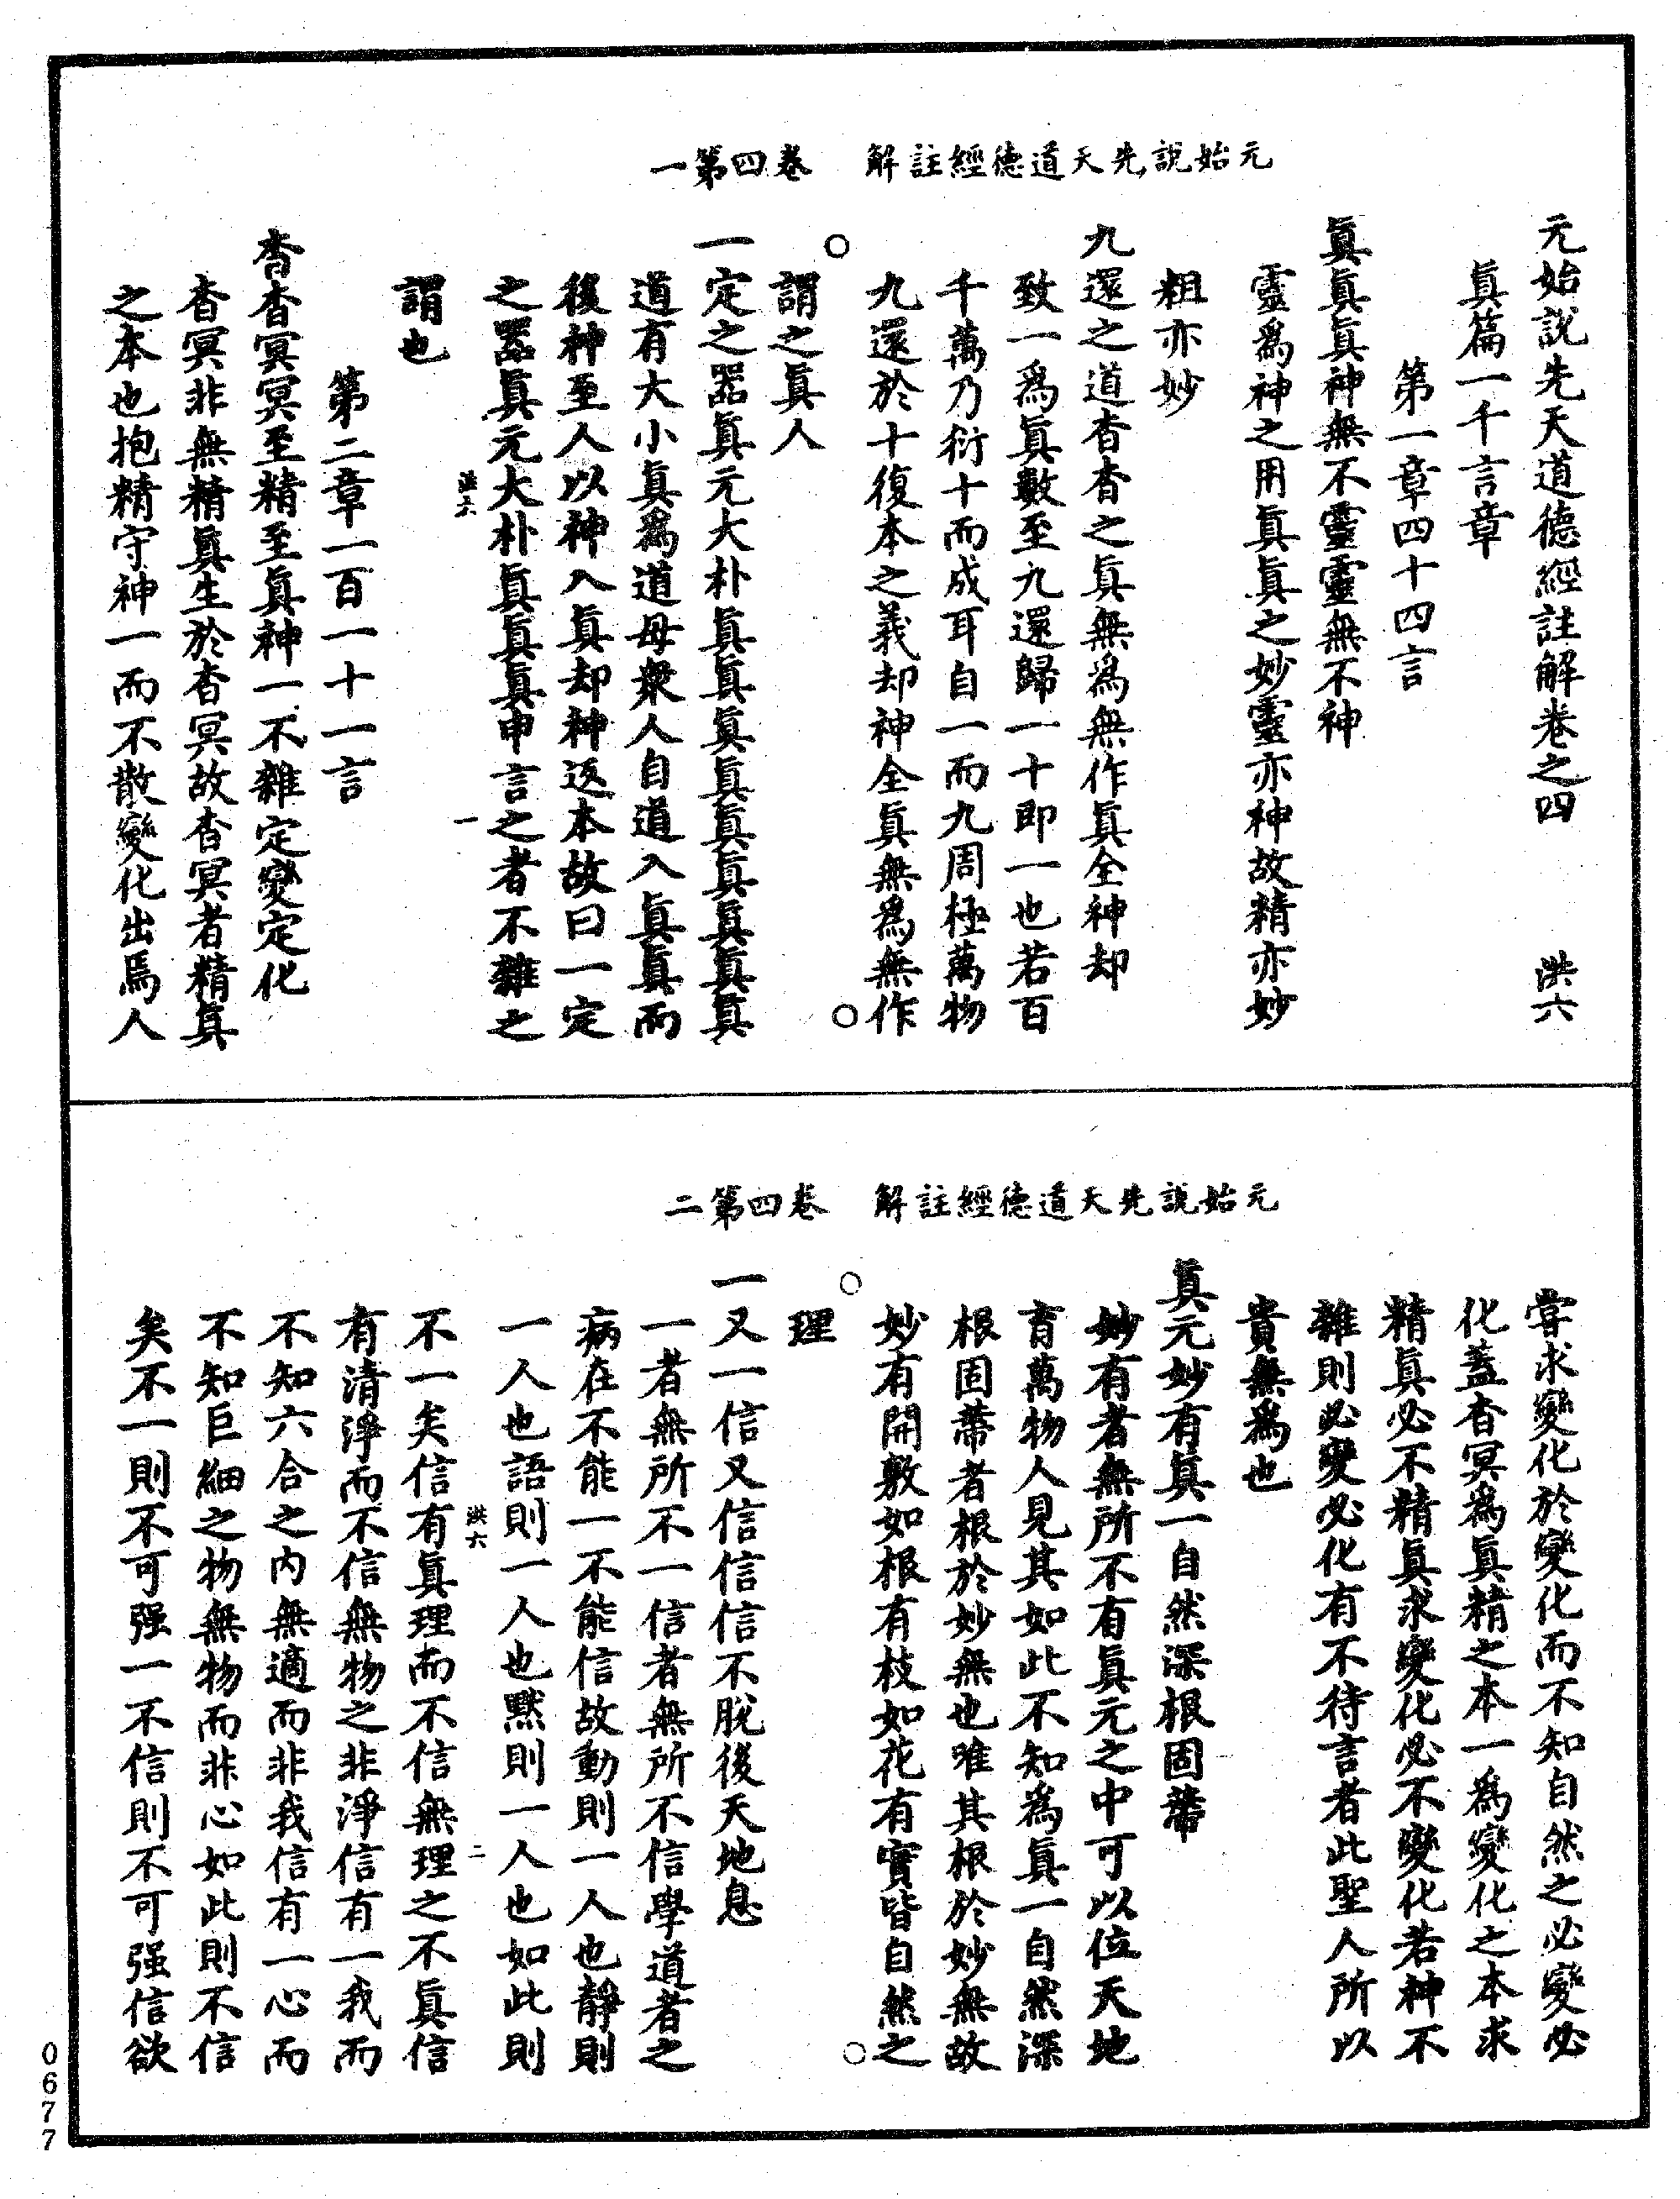 元始說先天道德經註解　卷四第一
元始說先天道德經註解卷之四　洪六
眞篇一千言章
第一章四十四言
眞眞眞神無不靈靈無不神
靈爲神之用眞眞之妙靈亦神故精亦妙
粗亦妙
九還之道杳杳之眞無爲無作眞全神却
致一爲眞數至九還歸一十即一也若百
千萬乃衍十而成耳自一而九周極萬物
九還於十復本之義却神全眞無爲無作
謂之眞人
一定之器眞元大朴眞眞眞眞眞眞眞眞眞
道有大小眞爲道母衆人自道入眞眞而
後神至人以神入眞却神返本故曰一定
之器眞元大朴眞眞眞申言之者不雜之
洪六　一
謂也
第二章一百一十一言
杳杳冥冥至精至眞神一不雜定變定化
杳冥非無精眞生於杳冥故杳冥者精眞
之本也抱精守神一而不散變化出焉人
元始說先天道德經註解　卷四第二
嘗求變化於變化而不知自然之必變必
化蓋杳冥爲眞精之本一爲變化之本求
精眞必不精眞求變化必不變化若神不
雜則必變必化有不待言者此聖人所以
貴無爲也
眞元妙有眞一自然深根固蔕
妙有者無所不有眞元之中可以位天地
育萬物人見其如此不知爲眞一自然深
根固蔕者根於妙無也唯其根於妙無故
妙有開敷如根有枝如花有實皆自然之
理
一又一信又信信信不脫後天地息
一者無所不一信者無所不信學道者之
病在不能一不能信故動則一人也靜則
一人也語則一人也默則一人也如此則
洪六　二
不一矣信有眞理而不信無理之不眞信
有清淨而不信無物之非淨信有一我而
不知六合之内無適而非我信有一心而
不知巨細之物無物而非心如此則不信
矣不一則不可强一不信則不可强信欲
0677